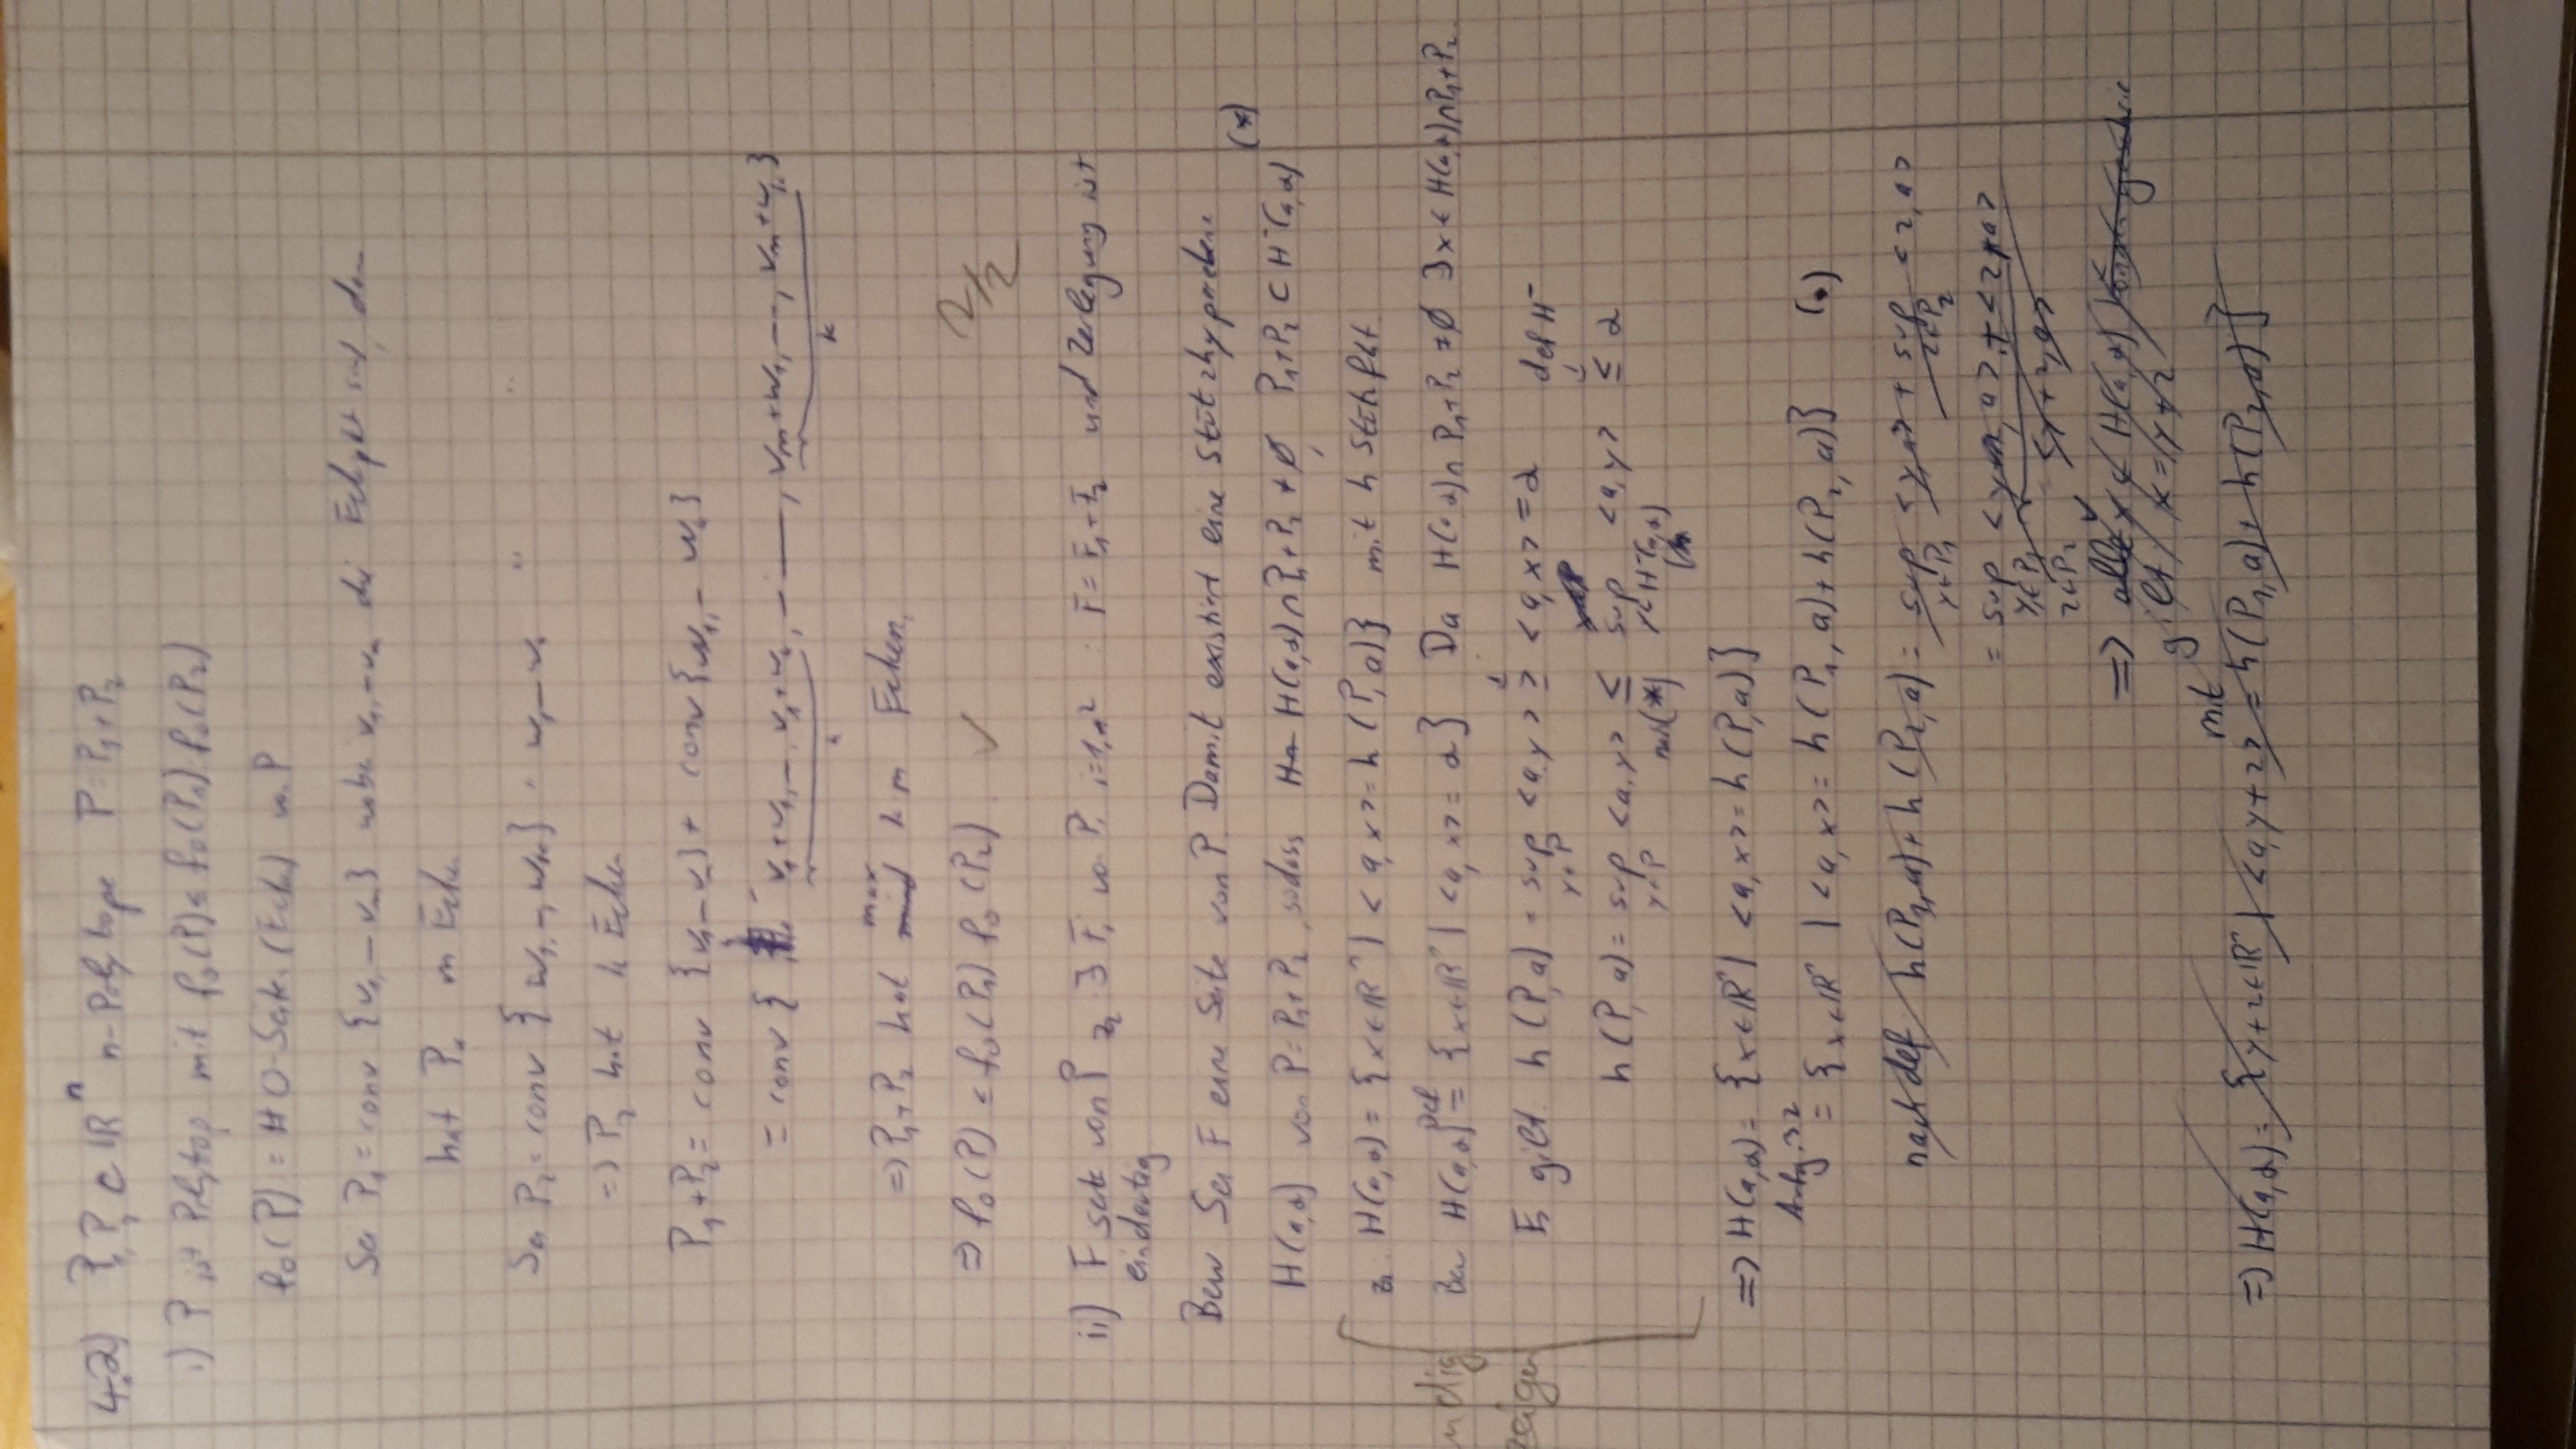 4.2) P₁, P₂ ⊂ ℝⁿ n-Polytope P = P₁+P₂
i) P ist Polytop mit f₀(P) ≤ f₀(P₁) f₀(P₂)
f₀(P) = # 0-Seiten (Ecken) von P
Sei P₁ = conv {v₁,–vₘ} wobei v₁,–vₘ die Eckpkt sind, dann
hat P₁ m Ecken
Sei P₂ = conv {w₁,–,wₖ} " w₁–wₖ " "
=> P₂ hat k Ecken
P₁+P₂ = conv {v₁–vₘ} + conv {w₁,– wₖ}
= conv { v₁+w₁,–, v₁+wₖ, – ––, vₘ+w₁,––, vₘ+wₖ}
k k
=> P₁+P₂ hat max k m Ecken.
=> f₀(P) ≤ f₀(P₁) f₀(P₂) ✓ 2/2
ii) F Seite von P zz ∃ Fᵢ von Pᵢ i=1,2 : F = F₁+F₂ und Zerlegung ist
eindeutig
Bew Sei F eine Seite von P. Damit existiert eine Stützhyperebene
H(a,α) von P=P₁+P₂, sodass H(a,α)∩P₁+P₂ ≠ ∅, P₁+P₂ ⊂ H⁻(a,α) (*)
zz. H(a,α) = {x∈ℝⁿ | <a,x> = h(P,a)} mit h Stützfkt.
ndig
Bew H(a,α) Def= {x∈ℝⁿ | <a,x> = α} Da H(a,α)∩P₁+P₂ ≠ ∅ ∃x∈H(a,α)∩P₁+P₂
zeigen
Es gilt. h(P,a) = sup y∈P <a,y> ≥ <a,x> = α def H⁻
h(P,a) = sup y∈P <a,y> ≤ mit(*) sup y∈H⁻(a,α) <a,y> ≤ α
=> H(a,α) = {x∈ℝⁿ | <a,x> = h(P,a)}
Aufg. 32
= {x∈ℝⁿ | <a,x> = h(P₁,a)+h(P₂,a)} (•)
nach def h(P₁,a)+h(P₂,a) = sup y∈P₁ <y,a> + sup z∈P₂ <z,a>
= sup y∈P₁ z∈P₂ <y,a> + <z,a>
<y+z,a>
=> alle x ∈ H(a,α)
gilt x = y+z
mit
=> H(a,α) = {y+z∈ℝⁿ | <a,y+z> = h(P₁,a)+h(P₂,a)}